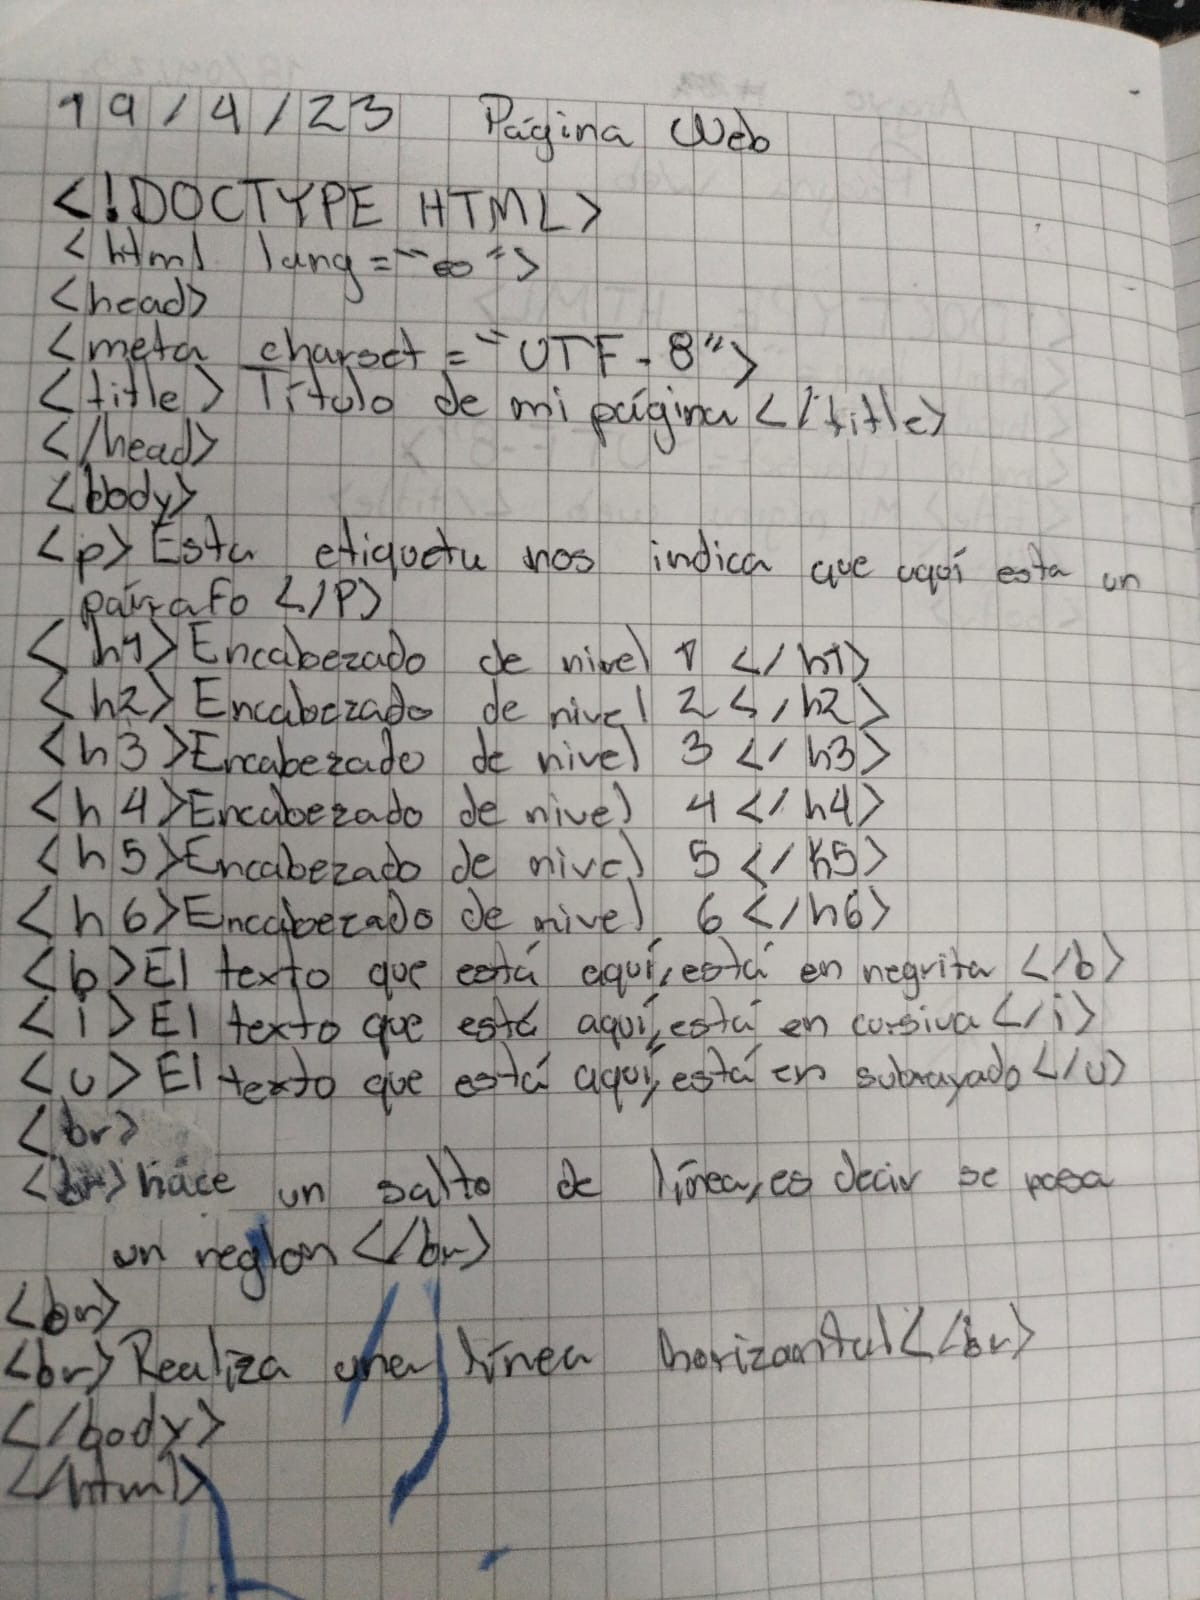 19/4/23 Página Web
<!DOCTYPE HTML>
<html lang="es">
<head>
<meta charset="UTF-8">
<title> Título de mi página </title>
</head>
<body>
<p> Esta etiqueta nos indica que aquí esta un
párrafo </p>
<h1> Encabezado de nivel 1 </h1>
<h2> Encabezado de nivel 2 </h2>
<h3> Encabezado de nivel 3 </h3>
<h4> Encabezado de nivel 4 </h4>
<h5> Encabezado de nivel 5 </h5>
<h6> Encabezado de nivel 6 </h6>
<b> El texto que está aquí, está en negrita </b>
<i> El texto que está aquí, está en cursiva </i>
<u> El texto que está aquí, está en subrayado </u>
<br>
<br> hace un salto de línea, es decir se pasa
un reglon </br>
<br>
<br> Realiza una línea horizontal </br>
</body>
</html>